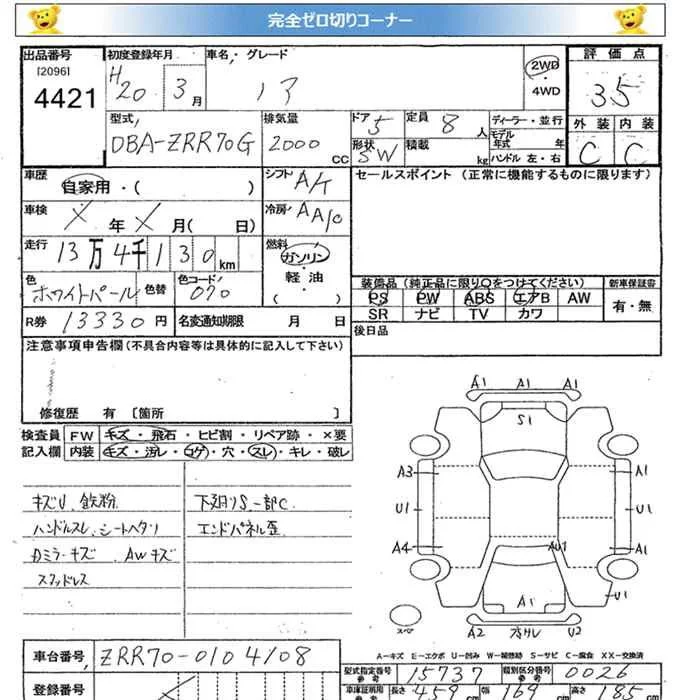 完全ゼロ切りコーナー
出品番号 初度登録年月 車名・グレード 評価点
[2096] H20 3月 2WD 3.5
4421 ・4WD 外装 内装
型式 排気量 ドア 5 定員 8人 ディーラー・並行 C C
DBA-ZRR70G 2000CC 形状 SW 積載 kg モデル年式 年
ハンドル 左・右
車歴 自家用・( ) シフト A/T セールスポイント (正常に機能するものに限ります)
車検 X年X月( 日) 冷房 AAC
走行 13万4千130km 燃料 ガソリン・軽油・( )
色 ホワイトパール 色替 色コード 070 装備品 (純正品に限り○をつけてください) 新車保証書
PS PW ABS エアB AW 有・無
R券 13330円 名変通知期限 月 日 SR ナビ TV カワ
注意事項申告欄 (不具合内容等は具体的に記入して下さい) 後日品
修復歴 有 [箇所 ]
検査員 FW キズ・飛石・ヒビ割・リペア跡・×要
記入欄 内装 キズ・汚レ・コゲ・穴・スレ・キレ・破レ
キズU 鉄粉 下廻りS 一部C
ハンドルスレ、シートヘタリ エンドパネル歪
カミラーキズ AWキズ
スタッドレス
A1 A1 A1
S1
A3 A1
U1 U1
A4 AU1 A1
A1 U1
スペア A2 U2
A-キズ E-エクボ U-凹み W-補修跡 S-サビ C-腐食 XX-交換済
車台番号 ZRR70-0104108 型式指定番号 参考 15737 類別区分番号 参考 0026
登録番号 車庫証明用 参考 長さ 459cm 幅 169cm 高さ 185cm